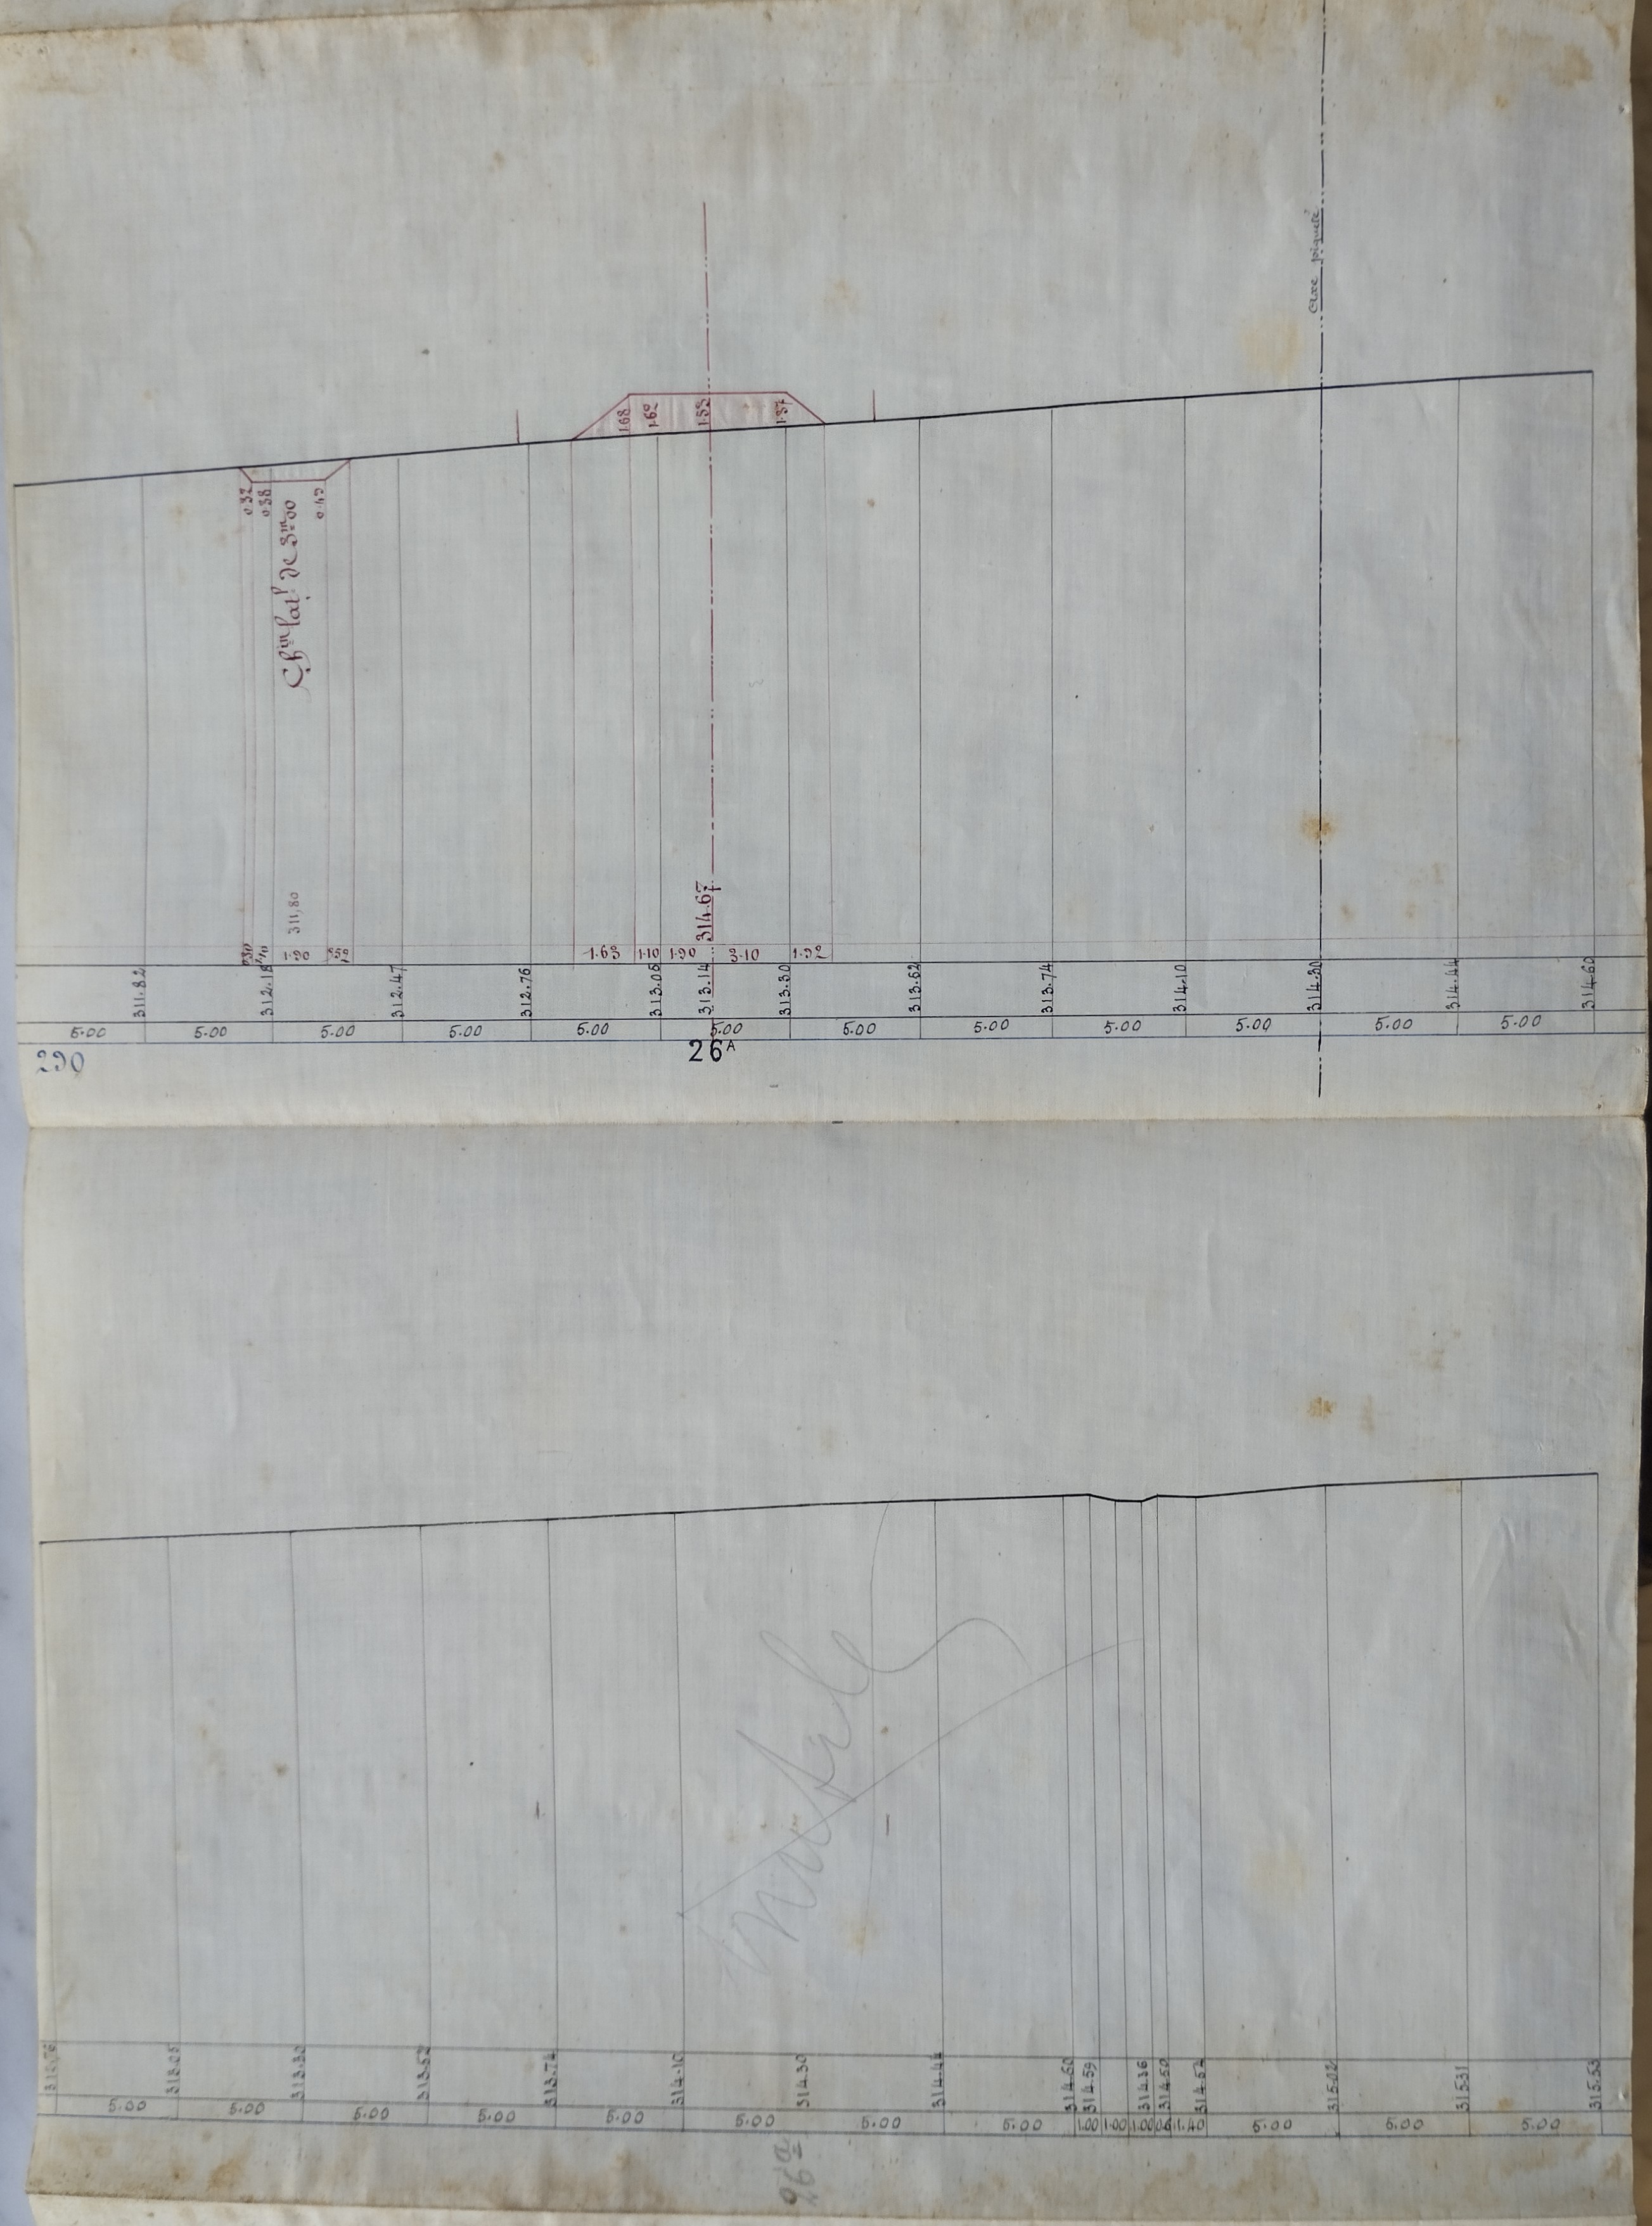 axe piqueté
1.68 1.62 1.53 1.37
0.32 0.38 0.49
Ch.in lat.l de 3m00
311,80
314.67
1.90 1.65 1.10 1.90 3.10 1.92
311.82 312.18 312.47 312.76 313.05 313.14 313.30 313.52 313.74 314.10 314.30 314.44 314.60
5.00 5.00 5.00 5.00 5.00 5.00 5.00 5.00 5.00 5.00 5.00 5.00
290
26A
312.76 313.05 313.30 313.52 313.74 314.10 314.30 314.44 314.60 314.59 314.36 314.50 314.52 315.02 315.31 315.53
5.00 5.00 5.00 5.00 5.00 5.00 5.00 5.00 1.00 1.00 1.00 1.40 5.00 5.00 5.00
26a